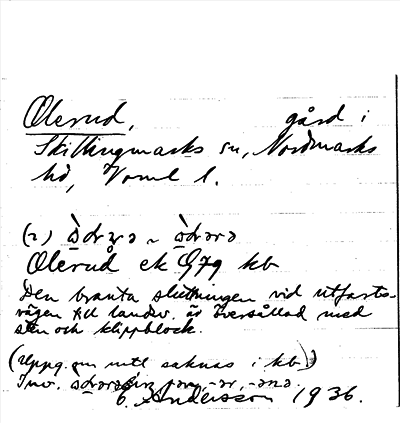 Olerud, gård i
Skillingmarks sn, Nordmarks
hd, Värml l.
Olerud ek G79 kb
Den branta sluttningen vid utfarts-
vägen till landsv. är översållad med
sten och klippblock.
(Uppg. om mtl saknas i kb)
Inv.
E. Andersson 1936.